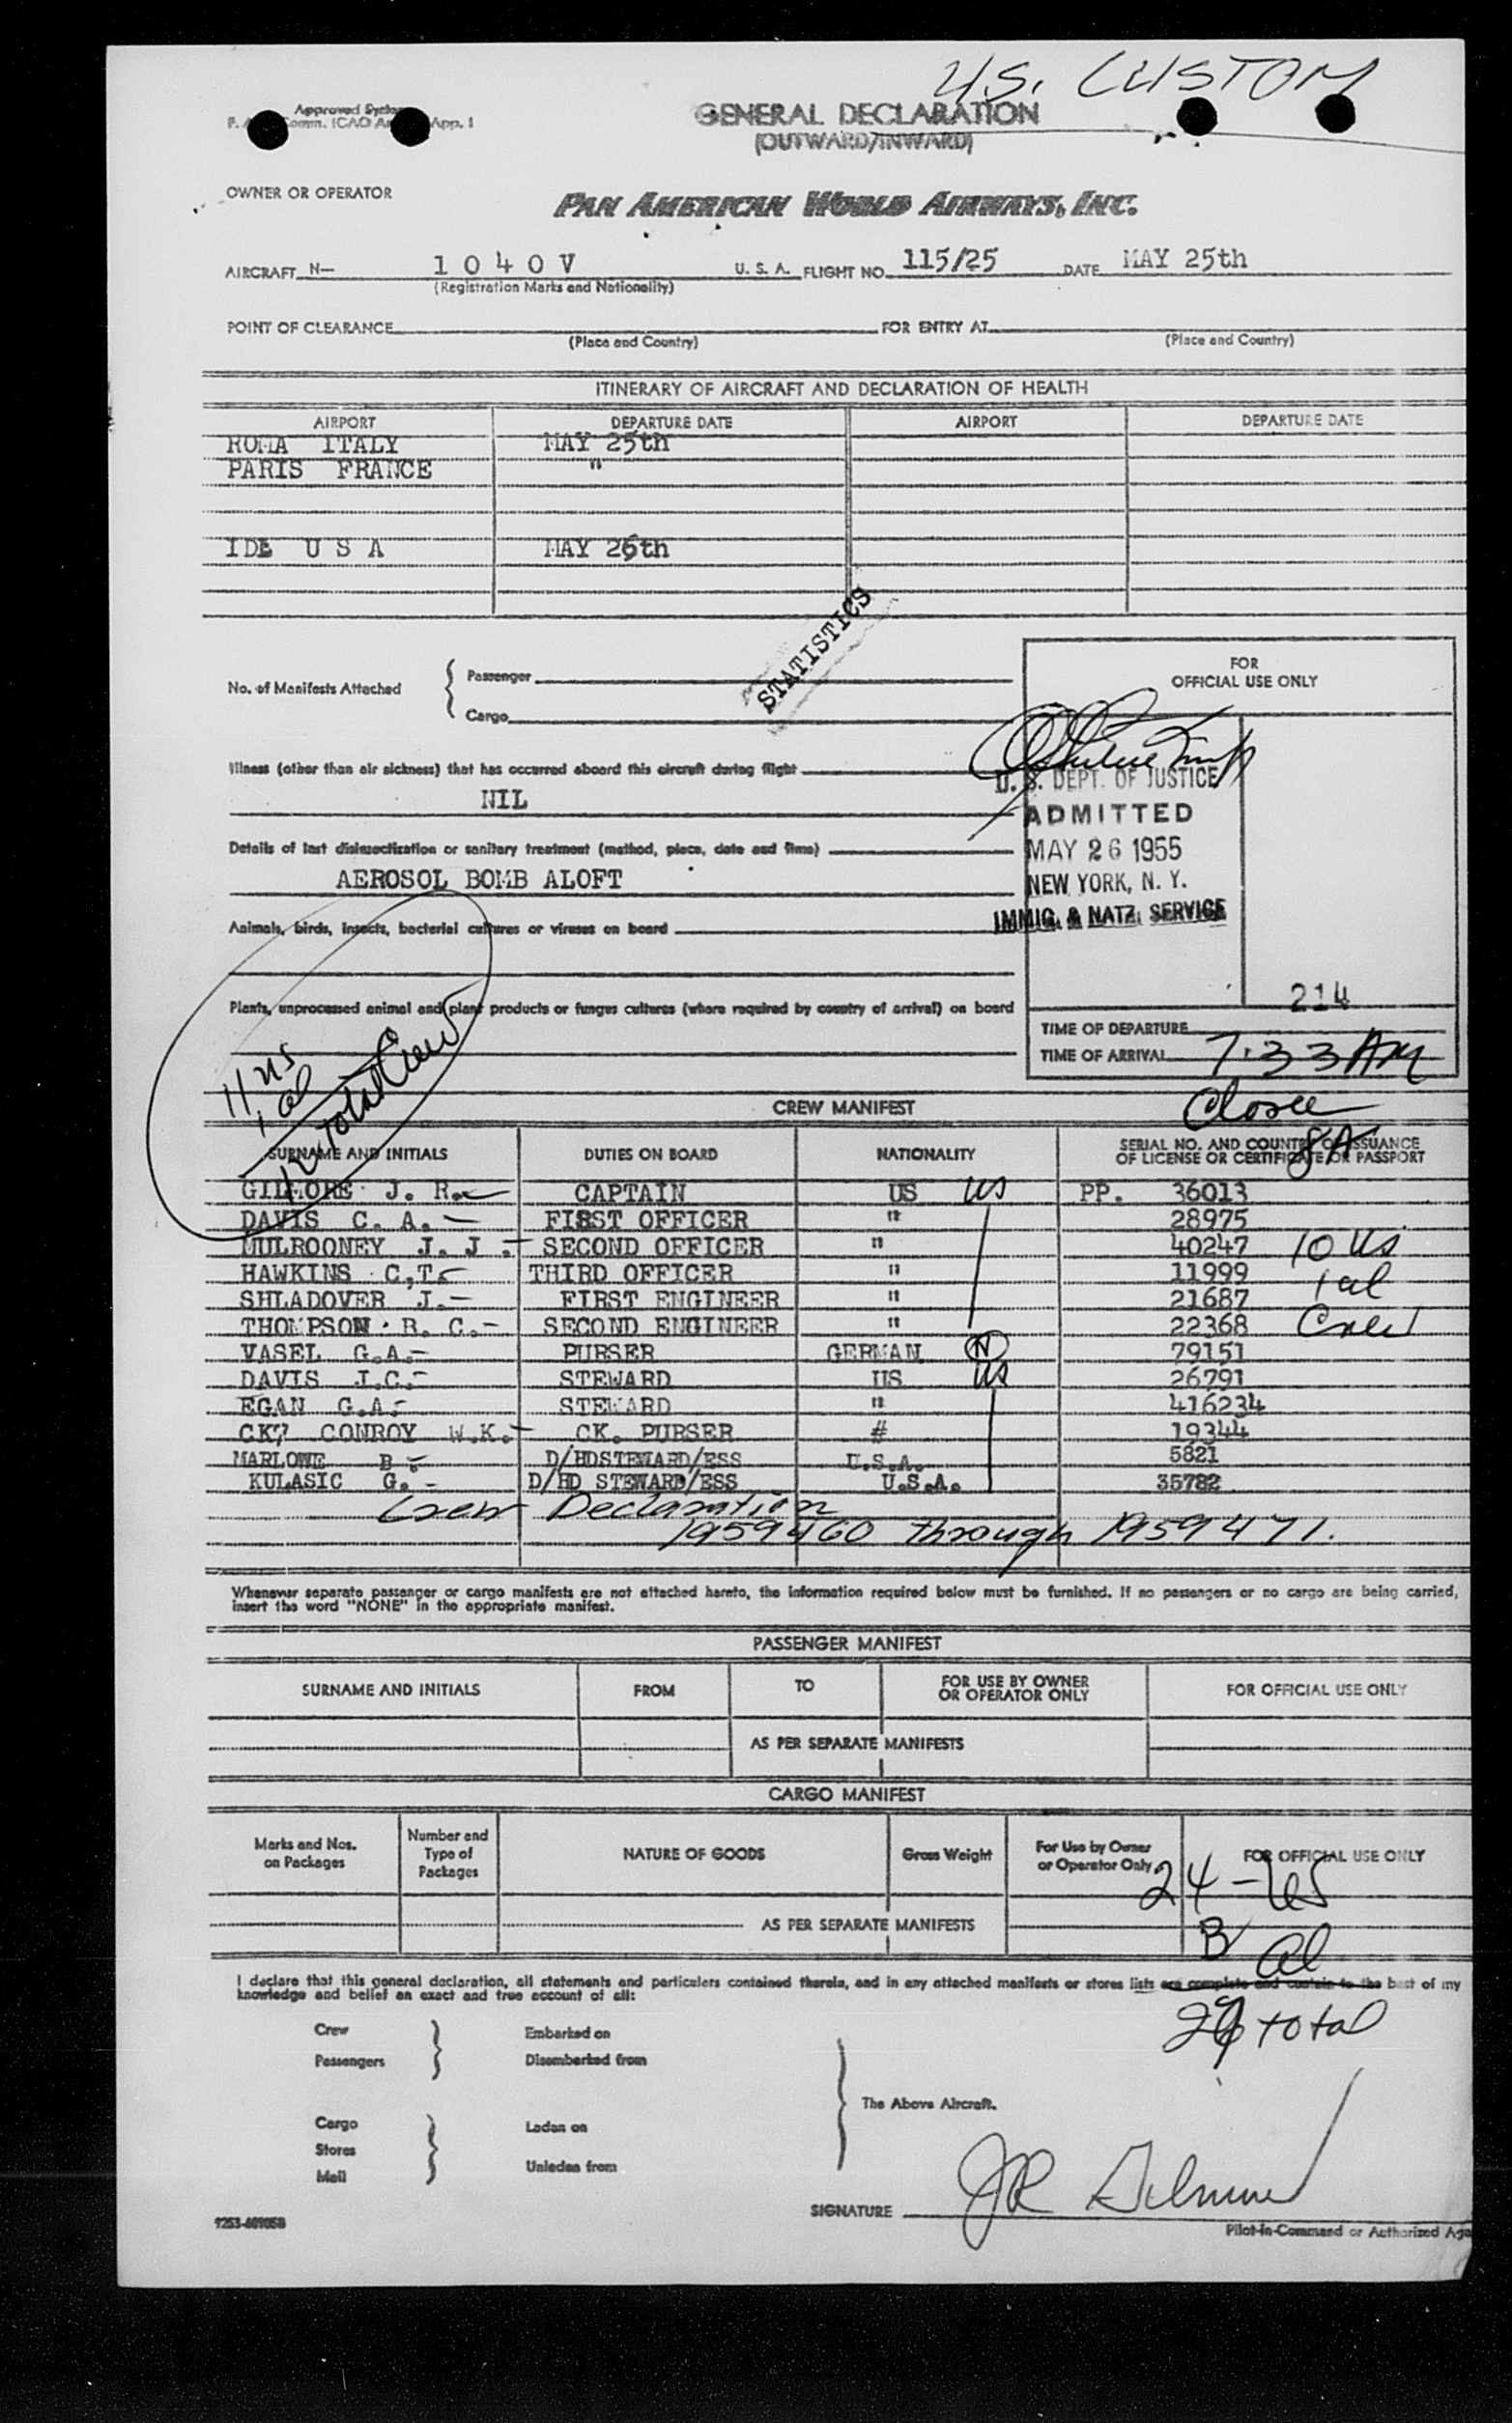 U.S. CUSTOM
Approved
Comm. ICAO App. I
GENERAL DECLARATION
(OUTWARD/INWARD)
OWNER OR OPERATOR
PAN AMERICAN WORLD AIRWAYS, INC.
AIRCRAFT N— 1 0 4 0 V U. S. A. FLIGHT NO. 115/25 DATE MAY 25th
(Registration Marks and Nationality)
POINT OF CLEARANCE FOR ENTRY AT
(Place and Country) (Place and Country)
ITINERARY OF AIRCRAFT AND DECLARATION OF HEALTH
AIRPORT DEPARTURE DATE AIRPORT DEPARTURE DATE
ROMA ITALY MAY 25th
PARIS FRANCE "
IDL U S A MAY 26th
STATISTICS
No. of Manifests Attached { Passenger
Cargo
FOR
OFFICIAL USE ONLY
Illness (other than air sickness) that has occurred aboard this aircraft during flight
NIL
U. S. DEPT. OF JUSTICE
ADMITTED
MAY 26 1955
NEW YORK, N. Y.
IMMIG. & NATZ. SERVICE
Details of last disinsectization or sanitary treatment (method, place, date and time)
AEROSOL BOMB ALOFT
Animals, birds, insects, bacterial cultures or viruses on board
214
Plants, unprocessed animal and plant products or fungus cultures (where required by country of arrival) on board
TIME OF DEPARTURE
TIME OF ARRIVAL 7:33 AM
11 US
1 al
12 total Crew
CREW MANIFEST
SURNAME AND INITIALS DUTIES ON BOARD NATIONALITY SERIAL NO. AND COUNTRY OF ISSUANCE
OF LICENSE OR CERTIFICATE OR PASSPORT
GILMORE J. R. CAPTAIN US US PP. 36013
DAVIS C. A. — FIRST OFFICER " 28975
MULROONEY J. J. — SECOND OFFICER " 40247 10 US
HAWKINS C,T. THIRD OFFICER " 11999 1 al
SHLADOVER J.— FIRST ENGINEER " 21687
THOMPSON R. C.— SECOND ENGINEER " 22368 Crew
VASEL G.A.— PURSER GERMAN N 79151
DAVIS J.C.— STEWARD US US 26791
EGAN G.A.- STEWARD " 416234
CK? CONROY W.K.- CK. PURSER # 19344
MARLOWE B.- D/HDSTEWARD/ESS U.S.A. 5821
KULASIC G. - D/HD STEWARD/ESS U.S.A. 35782
Crew Declaration
1959460 through 1959471.
Whenever separate passenger or cargo manifests are not attached hereto, the information required below must be furnished. If no passengers or no cargo are being carried,
insert the word "NONE" in the appropriate manifest.
PASSENGER MANIFEST
SURNAME AND INITIALS FROM TO FOR USE BY OWNER
OR OPERATOR ONLY FOR OFFICIAL USE ONLY
AS PER SEPARATE MANIFESTS
CARGO MANIFEST
Marks and Nos.
on Packages Number and
Type of
Packages NATURE OF GOODS Gross Weight For Use by Owner
or Operator Only FOR OFFICIAL USE ONLY
24 - US
AS PER SEPARATE MANIFESTS
al
I declare that this general declaration, all statements and particulars contained therein, and in any attached manifests or stores lists are complete and contain to the best of my
knowledge and belief an exact and true account of all:
total
Crew
Passengers
Embarked on
Disembarked from
The Above Aircraft.
Cargo
Stores
Mail
Laden on
Unladen from
SIGNATURE JR Gilmore
Pilot-in-Command or Authorized Age